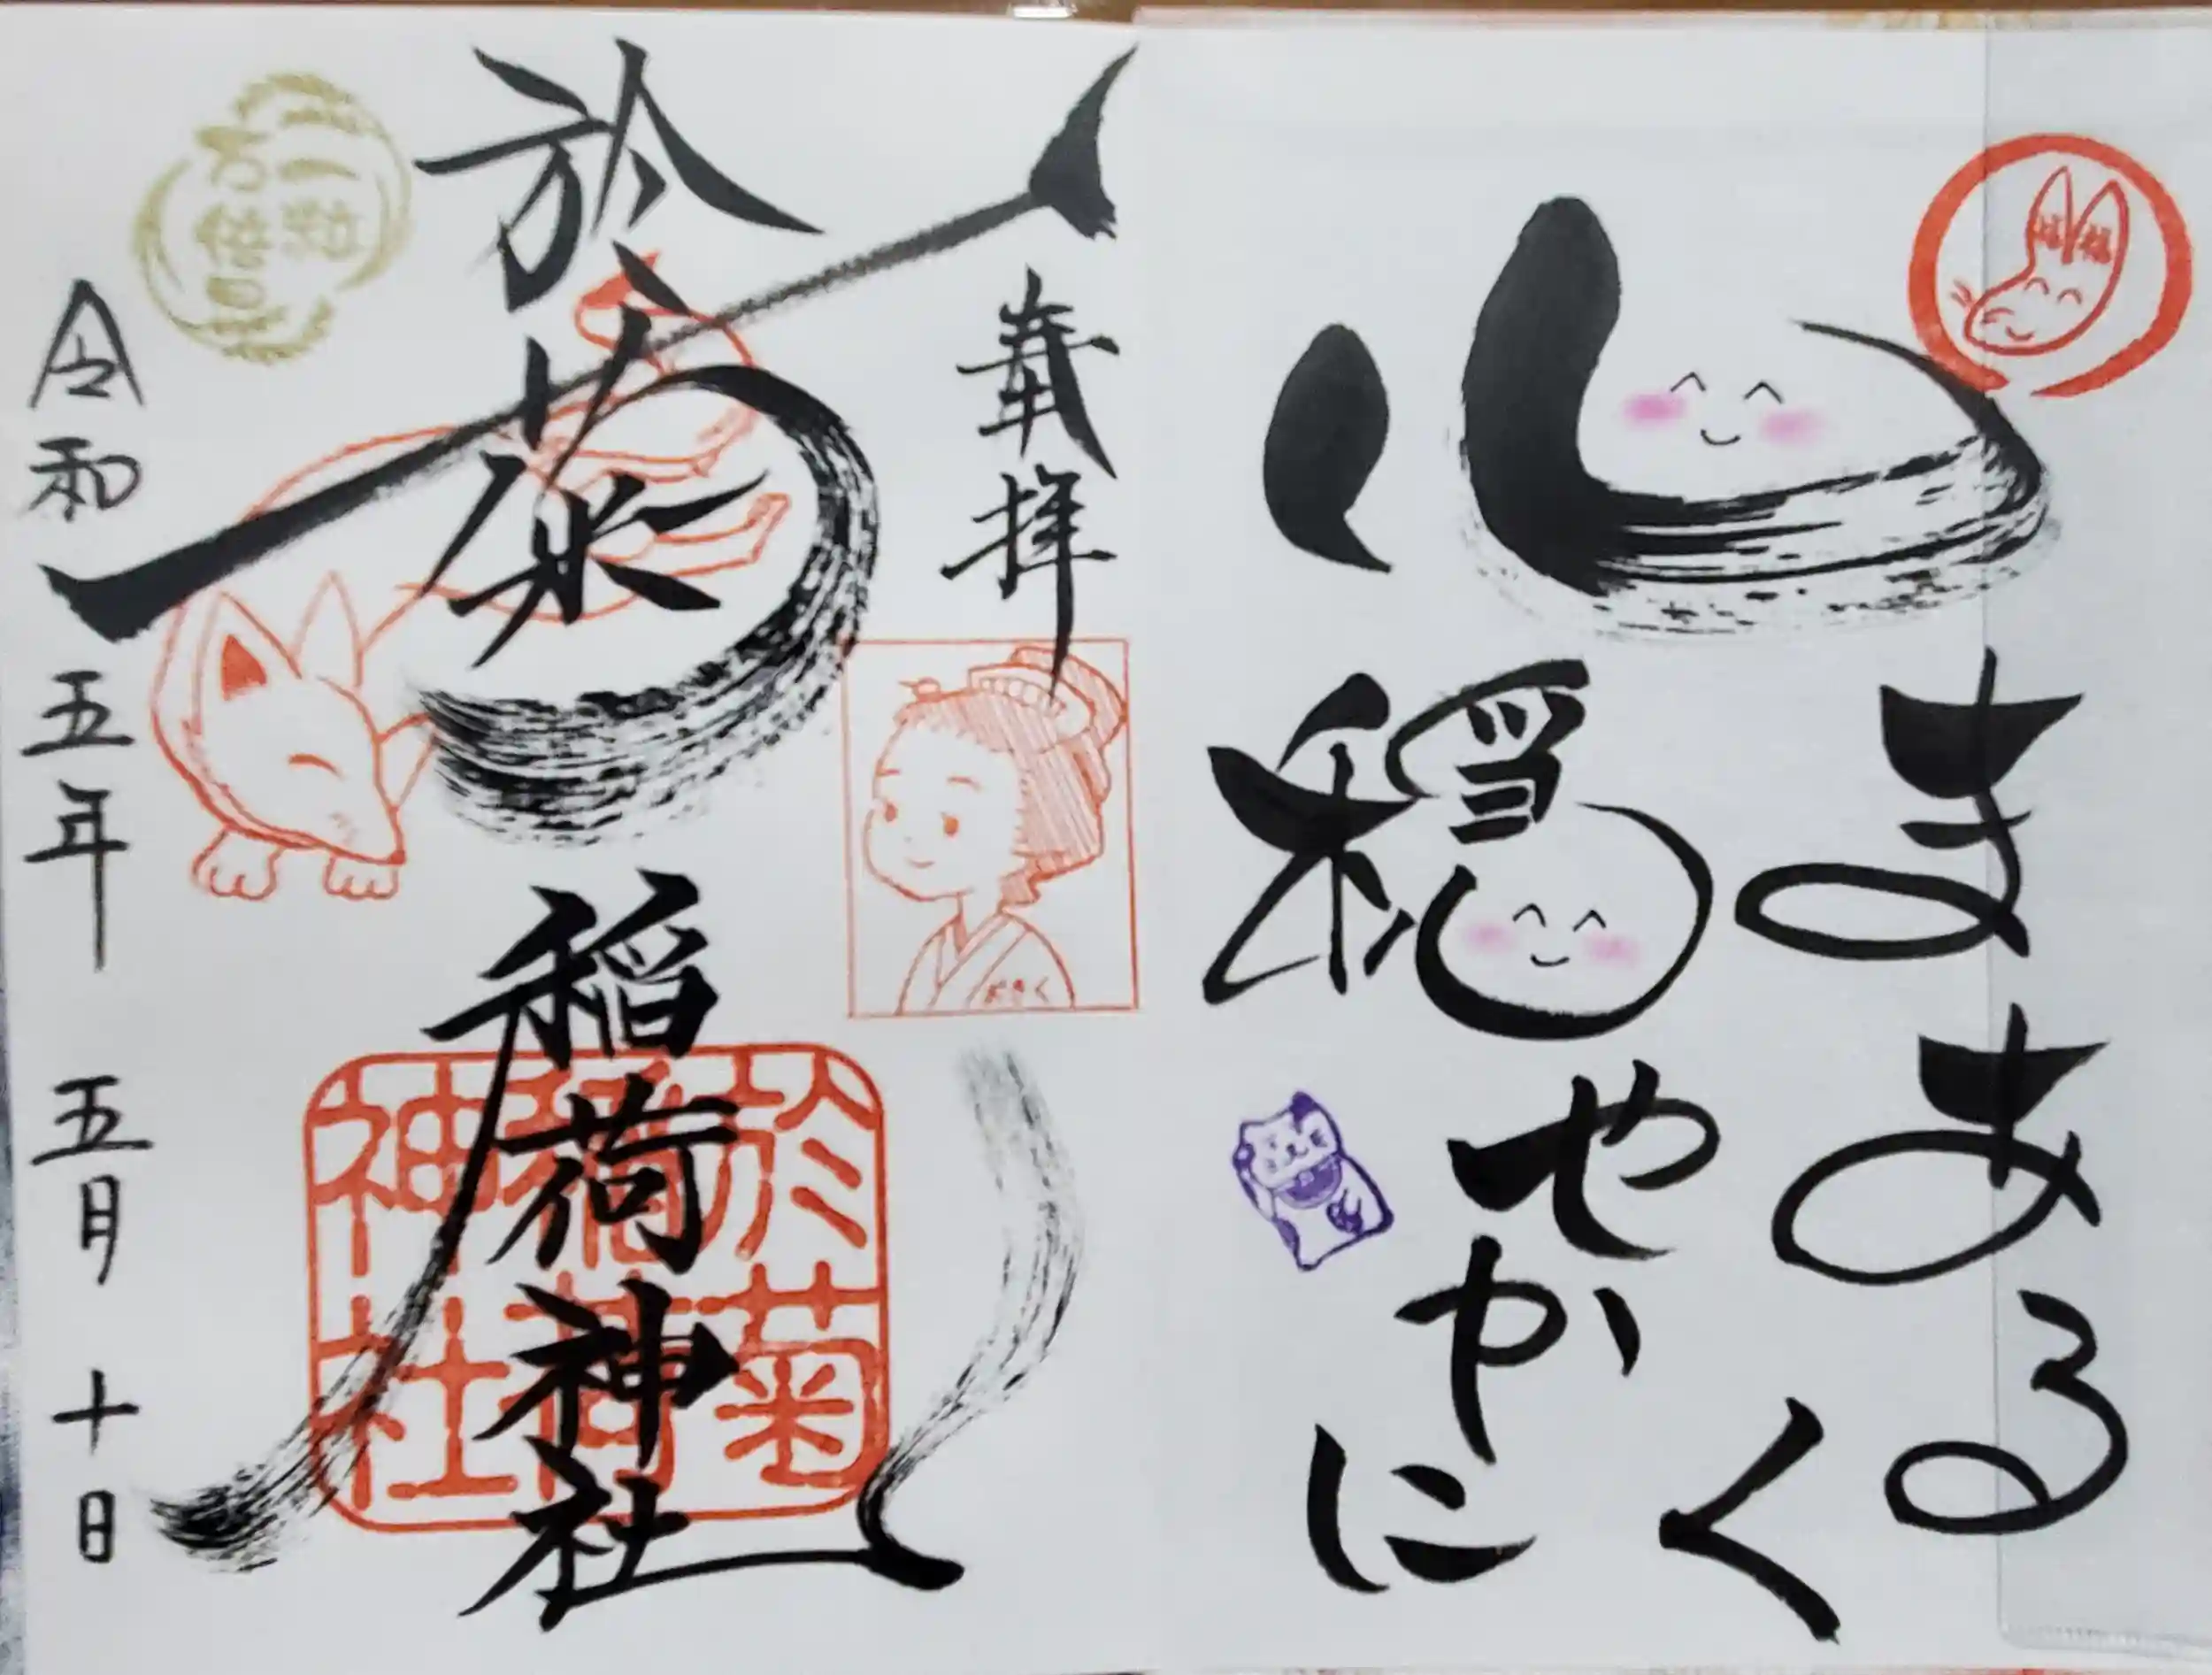 福福
心
まあるく
穏やかに
奉拝
おきく
於菊稲荷神社
於菊
稲荷
神社
一粒
万倍日
令和五年 五月 十日